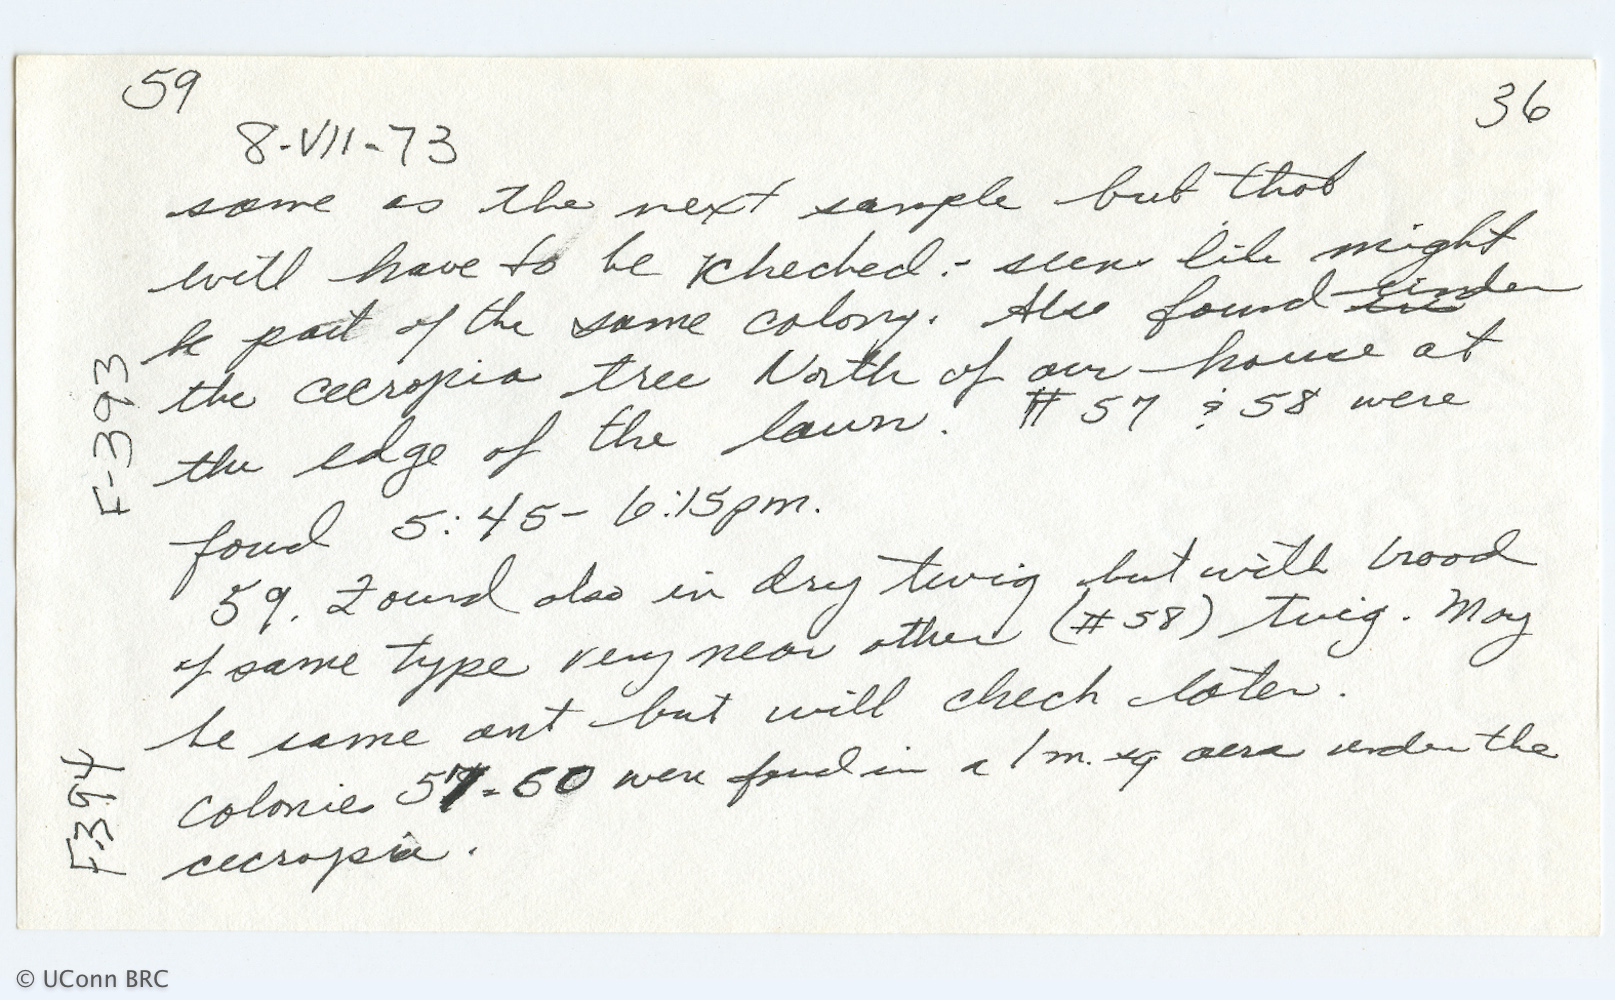 59
36
8-VII-73
same as the next sample but that
will have to be checked - seems like might
be part of the same colony. Also found under
the cecropia tree North of our house at
the edge of the lawn. #57 & 58 were
found 5:45- 6:15pm.
59. Found also in dry twig but with brood
of same type very near other (#58) twig. May
be same ant but will check later.
Colonies 57-60 were found in a 1 m. sq aera under the
cecropia.
F-393
F-394
© UConn BRC